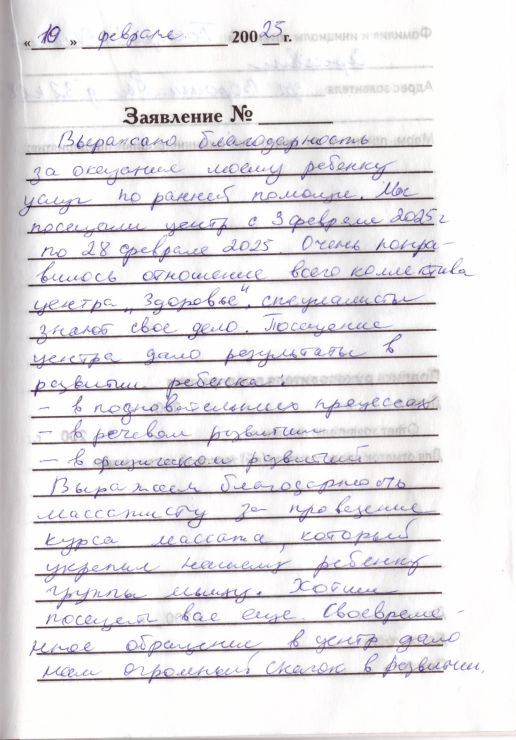 « 19 » февраля 2025 г.
Заявление №
Выражаю благодарность
за оказание моему ребенку
услуг по ранней помощи. Мы
посещали центр с 3 февраля 2025 г
по 28 февраля 2025. Очень понра-
вилось отношение всего коллектива
центра „Здоровье", специалисты
знают свое дело. Посещение
центра дало результаты в
развитии ребенка:
- в познавательных процессах
- в речевом развитии
- в физическом развитии
Выражаем благодарность
массажисту за проведение
курса массажа, который
укрепил нашему ребенку
группы мышц. Хотим
посещать вас еще. Своевреме-
нное обращение в центр дало
нам огромный скачок в развитии.